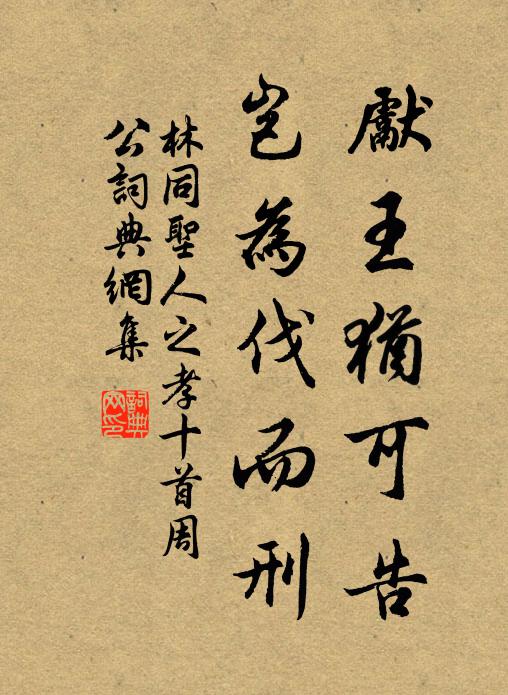 獻王猶可告
豈為伐而刑
林同聖人之孝十首周
公詞典網集
詞典
网印